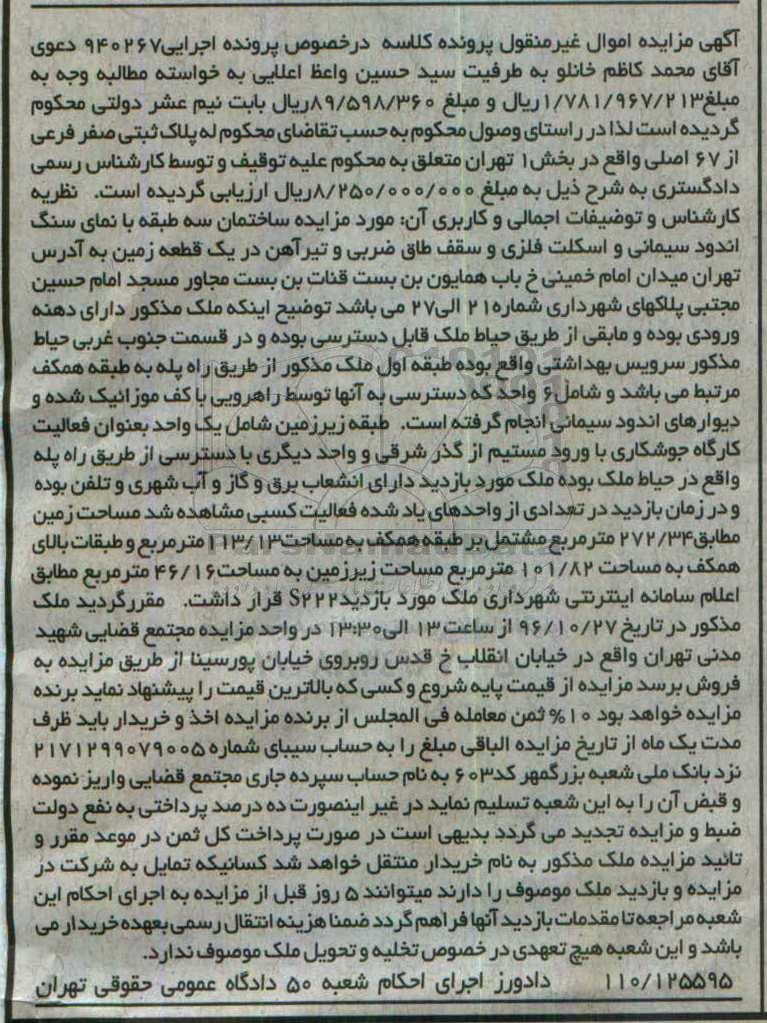 آگهی مزایده اموال غیرمنقول پرونده کلاسه درخصوص پرونده اجرایی۹۴۰۲۶۷ دعوی
آقای محمد کاظم خانلو به طرفیت سید حسین واعظ اعلایی به خواسته مطالبه وجه به
مبلغ۱/۷۸۱/۹۶۷/۲۱۳ریال و مبلغ ۸۹/۵۹۸/۳۶۰ریال بابت نیم عشر دولتی محکوم
گردیده است لذا در راستای وصول محکوم به حسب تقاضای محکوم له پلاک ثبتی صفر فرعی
از ۶۷ اصلی واقع در بخش۱ تهران متعلق به محکوم علیه توقیف و توسط کارشناس رسمی
دادگستری به شرح ذیل به مبلغ ۸/۲۵۰/۰۰۰/۰۰۰ریال ارزیابی گردیده است. نظریه
کارشناس و توضیفات اجمالی و کاربری آن: مورد مزایده ساختمان سه طبقه با نمای سنگ
اندود سیمانی و اسکلت فلزی و سقف طاق ضربی و تیرآهن در یک قطعه زمین به آدرس
تهران میدان امام خمینی خ باب همایون بن بست قنات بن بست مجاور مسجد امام حسین
مجتبی پلاکهای شهرداری شماره۲۱ الی۲۷ می باشد توضیح اینکه ملک مذکور دارای دهنه
ورودی بوده و مابقی از طریق حیاط ملک قابل دسترسی بوده و در قسمت جنوب غربی حیاط
مذکور سرویس بهداشتی واقع بوده طبقه اول ملک مذکور از طریق راه پله به طبقه همکف
مرتبط می باشد و شامل۶ واحد که دسترسی به آنها توسط راهرویی با کف موزائیک شده و
دیوارهای اندود سیمانی انجام گرفته است. طبقه زیرزمین شامل یک واحد بعنوان فعالیت
کارگاه جوشکاری با ورود مستیم از گذر شرقی و واحد دیگری با دسترسی از طریق راه پله
واقع در حیاط ملک بوده ملک مورد بازدید دارای انشعاب برق و گاز و آب شهری و تلفن بوده
و در زمان بازدید در تعدادی از واحدهای یاد شده فعالیت کسبی مشاهده شد مساحت زمین
مطابق۲۷۲/۳۴ مترمربع مشتمل بر طبقه همکف به مساحت۱۱۳/۱۳ مترمربع و طبقات بالای
همکف به مساحت ۱۰۱/۸۲ مترمربع مساحت زیرزمین به مساحت۴۶/۱۶ مترمربع مطابق
اعلام سامانه اینترنتی شهرداری ملک مورد بازدیدS۲۲۲ قرار داشت. مقررگردید ملک
مذکور در تاریخ ۹۶/۱۰/۲۷ از ساعت ۱۳ الی۱۳:۳۰ در واحد مزایده مجتمع قضایی شهید
مدنی تهران واقع در خیابان انقلاب خ قدس روبروی خیابان پورسینا از طریق مزایده به
فروش برسد مزایده از قیمت پایه شروع و کسی که بالاترین قیمت را پیشنهاد نماید برنده
مزایده خواهد بود ۱۰% ثمن معامله فی المجلس از برنده مزایده اخذ و خریدار باید ظرف
مدت یک ماه از تاریخ مزایده الباقی مبلغ را به حساب سیبای شماره ۲۱۷۱۲۹۹۰۷۹۰۰۵
نزد بانک ملی شعبه بزرگمهر کد۶۰۳ به نام حساب سپرده جاری مجتمع قضایی واریز نموده
و قبض آن را به این شعبه تسلیم نماید در غیر اینصورت ده درصد پرداختی به نفع دولت
ضبط و مزایده تجدید می گردد بدیهی است در صورت پرداخت کل ثمن در موعد مقرر و
تائید مزایده ملک مذکور به نام خریدار منتقل خواهد شد کسانیکه تمایل به شرکت در
مزایده و بازدید ملک موصوف را دارند میتوانند ۵ روز قبل از مزایده به اجرای احکام این
شعبه مراجعه تا مقدمات بازدید آنها فراهم گردد ضمنا هزینه انتقال رسمی بعهده خریدار می
باشد و این شعبه هیچ تعهدی در خصوص تخلیه و تحویل ملک موصوف ندارد.
۱۱۰/۱۲۵۵۹۵ دادورز اجرای احکام شعبه ۵۰ دادگاه عمومی حقوقی تهران